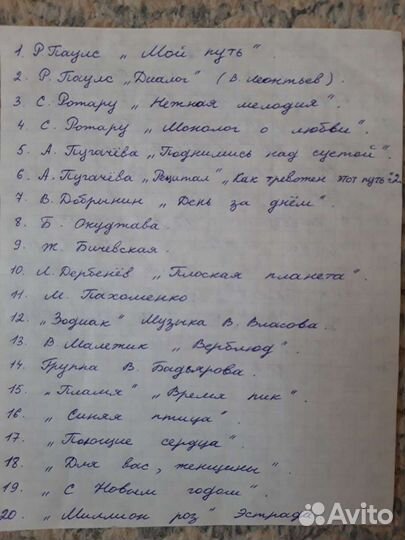 1. Р. Паулс „Мой путь".
2. Р. Паулс „Диалог" (В. Леонтьев).
3. С. Ротару „Нежная мелодия".
4. С. Ротару „Монолог о любви".
5. А. Пугачёва „Поднимись над суетой".
6. А. Пугачёва „Реситал" „Как тревожен этот путь" 2
7. В. Добрынин „День за днём".
8. Б. Окуджава.
9. Ж. Бичевская.
10. Л. Дербенёв „Плоская планета".
11. М. Пахоменко
12. „Зодиак" Музыка В. Власова.
13. В. Малежик „Верблюд".
14. Группа В. Бадьярова.
15. „Пламя" „Время пик".
16. „Синяя птица".
17. „Поющие сердца".
18. „Для вас, женщины".
19. „С Новым годом".
20. „Миллион роз" Эстрада
Avito